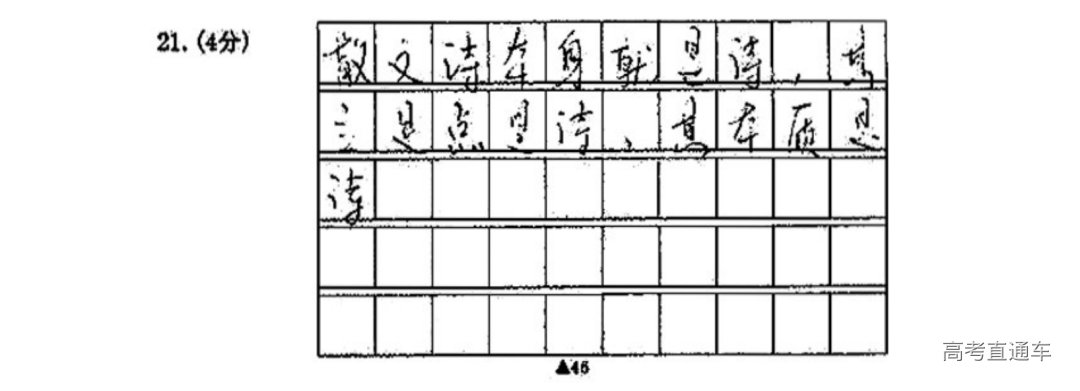 21.(4分)
散文诗本身就是诗,其
主是点是诗,其本质是
诗
▲45
高考直通车